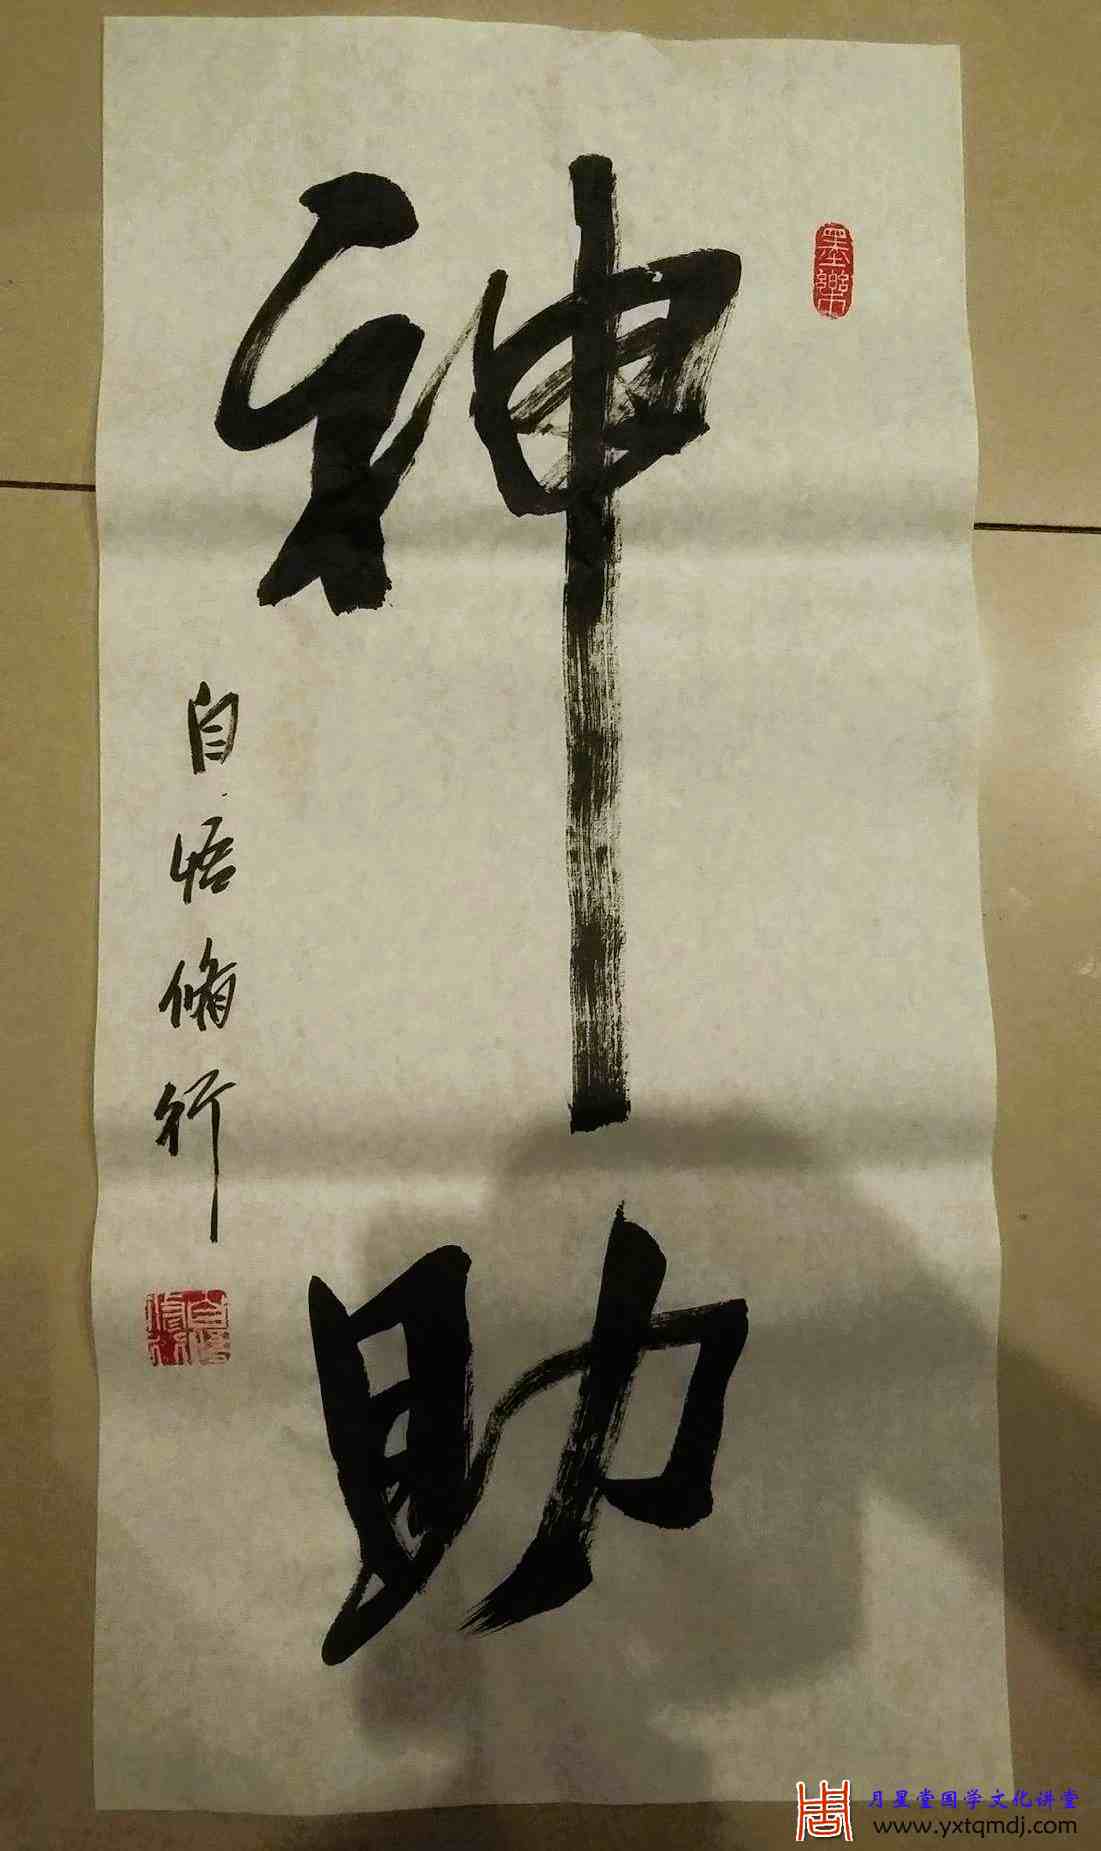 神助
墨樂
自悟脩行
自悟
脩行
月星堂国学文化讲堂
www.yxtqmdj.com